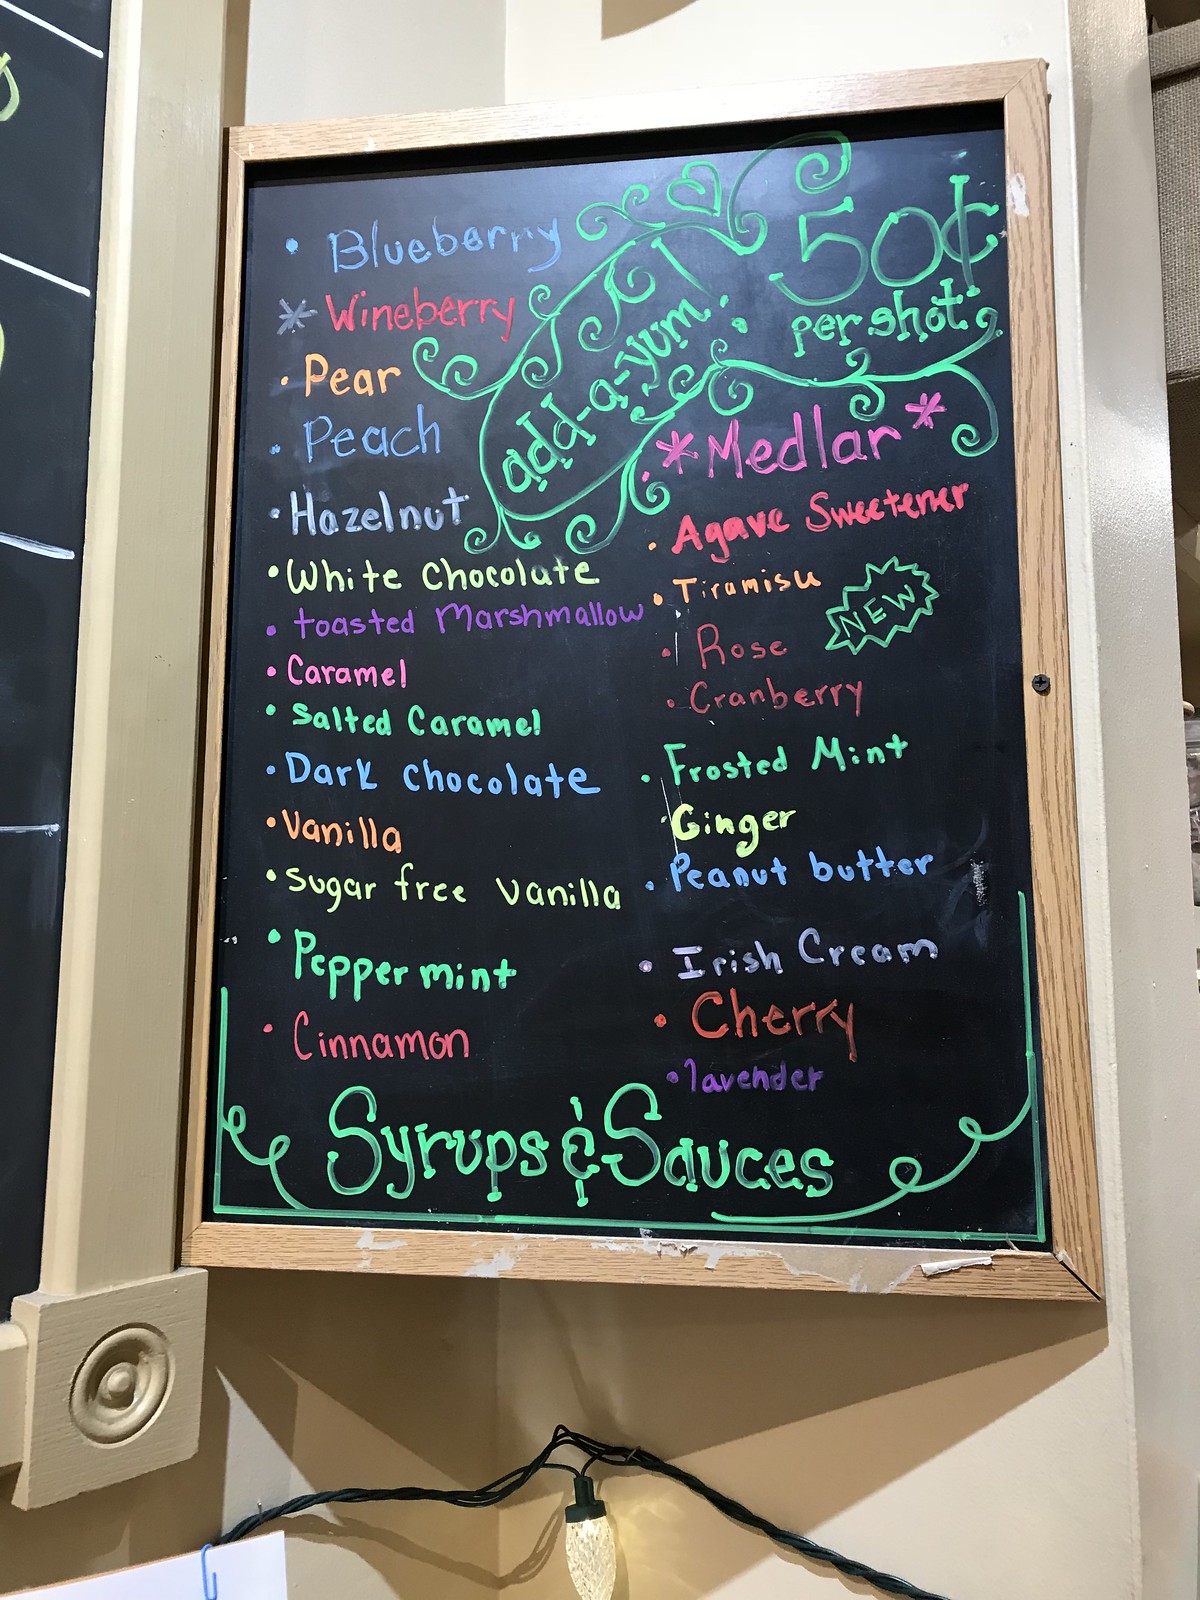 • Blueberry
* Wineberry
• Pear
• Peach
• Hazelnut
• White Chocolate
• toasted Marshmallow
• Caramel
• Salted Caramel
• Dark chocolate
• Vanilla
• sugar free Vanilla
• Peppermint
• Cinnamon
add-a-yum!
50¢
per shot
* Medlar *
• Agave Sweetener
• Tiramisu
NEW
• Rose
• Cranberry
• Frosted Mint
• Ginger
• Peanut butter
• Irish Cream
• Cherry
• lavender
Syrups & Sauces